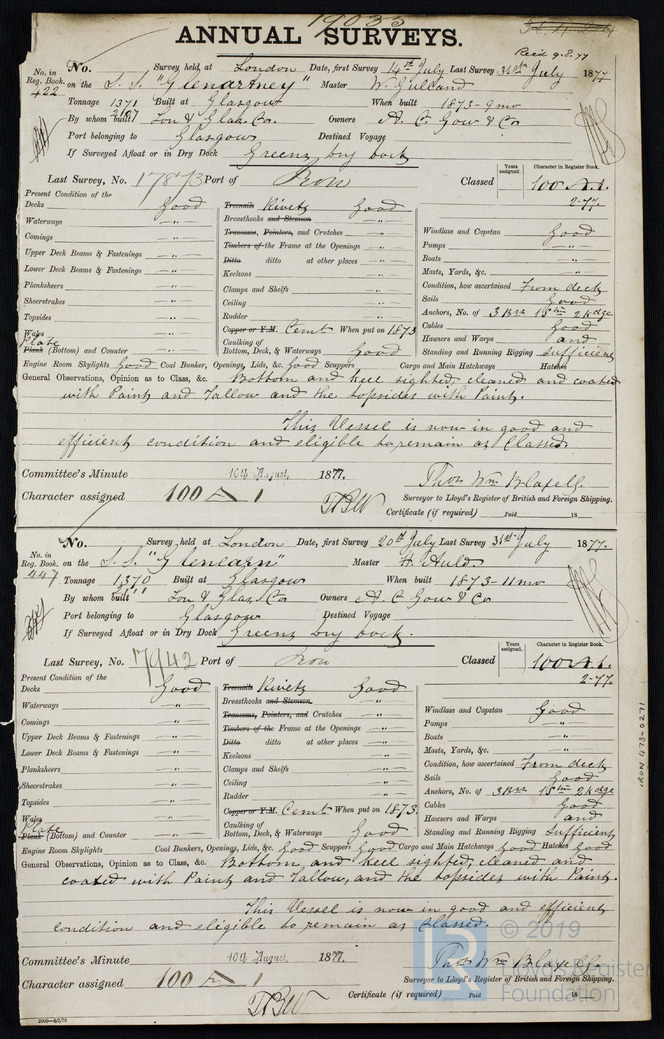 19035
ANNUAL SURVEYS.
Recd 9.8.77
No. Survey held at London Date, first Survey 14th July Last Survey 31st July 1877
No. in Reg. Book. 422 on the S.S. "Glenartney" Master W. Gulland
Tonnage 1371 2187 Built at Glasgow When built 1873-9mo
By whom built Lon & Glas. Co. Owners A. C. Gow & Co
Port belonging to Glasgow Destined Voyage
If Surveyed Afloat or in Dry Dock Greens Dry Dock
Last Survey, No. 17873 Port of Iron Classed Years assigned. Character in Register Book. 100 A.1. 2-77.
Present Condition of the
Decks Good Treenails Rivets Good
Waterways " Breasthooks and Stemson " Windlass and Capstan Good
Comings " Transoms, Pointers, and Crutches " Pumps "
Upper Deck Beams & Fastenings " Timbers of the Frame at the Openings " Boats "
Lower Deck Beams & Fastenings " Ditto ditto at other places " Masts, Yards, &c. "
Planksheers " Keelsons " Condition, how ascertained From deck
Sheerstrakes " Clamps and Shelfs " Sails Good
Topsides " Ceiling " Anchors, No. of 3 Brs 1 Stm 2 Kdge
Wales " Rudder " Cables Good
Plate Plank (Bottom) and Counter " Copper or Y.M. Cemt When put on 1873 Hawsers and Warps and
Caulking of Bottom, Deck, & Waterways Good Standing and Running Rigging sufficient
Engine Room Skylights Good Coal Bunker, Openings, Lids, &c. Good Scuppers Cargo and Main Hatchways Hatches
General Observations, Opinion as to Class, &c. Bottom and keel sighted, cleaned and coated
with Paint and Tallow and the topsides with Paint.
This Vessel is now in good and
efficient condition and eligible to remain as Classed.
Committee's Minute 10th August 1877.
Character assigned 100 A 1
Thos Wm Blaxell.
Surveyor to Lloyd's Register of British and Foreign Shipping.
Certificate (if required) Paid 18
No. Survey held at London Date, first Survey 20th July Last Survey 31st July 1877.
No. in Reg. Book. 447 on the S.S. "Glenearn" Master H. Auld
Tonnage 1370 Built at Glasgow When built 1873-11mo
By whom built Lon & Glas. Co Owners A C Gow & Co
Port belonging to Glasgow Destined Voyage
If Surveyed Afloat or in Dry Dock Greens Dry Dock.
Last Survey, No. 17942 Port of Iron Classed Years assigned. Character in Register Book. 100 A.1. 2-77.
Present Condition of the
Decks Good Treenails Rivets Good
Waterways " Breasthooks and Stemson " Windlass and Capstan Good
Comings " Transoms, Pointers, and Crutches " Pumps "
Upper Deck Beams & Fastenings " Timbers of the Frame at the Openings " Boats "
Lower Deck Beams & Fastenings " Ditto ditto at other places " Masts, Yards, &c. "
Planksheers " Keelsons " Condition, how ascertained From deck
Sheerstrakes " Clamps and Shelfs " Sails Good
Topsides " Ceiling " Anchors, No. of 3 Brs 1 Stm 2 Kdge
Wales " Rudder " Cables Good
Plate Plank (Bottom) and Counter " Copper or Y.M. Cemt When put on 1873. Hawsers and Warps and
Caulking of Bottom, Deck, & Waterways Good Standing and Running Rigging sufficient
Engine Room Skylights Coal Bunkers, Openings, Lids, &c. Good Scuppers Good Cargo and Main Hatchways Good Hatches Good
General Observations, Opinion as to Class, &c. Bottom and keel sighted, cleaned and
coated with Paint and Tallow, and the topsides with Paint.
This Vessel is now in good and efficient
condition and eligible to remain as Classed.
Committee's Minute 10th August 1877.
Character assigned 100 A 1
Thos Wm Blaxell.
Surveyor to Lloyd's Register of British and Foreign Shipping.
Certificate (if required) Paid 18
IRON 473-0271
© 2019
Lloyd's Register
Foundation